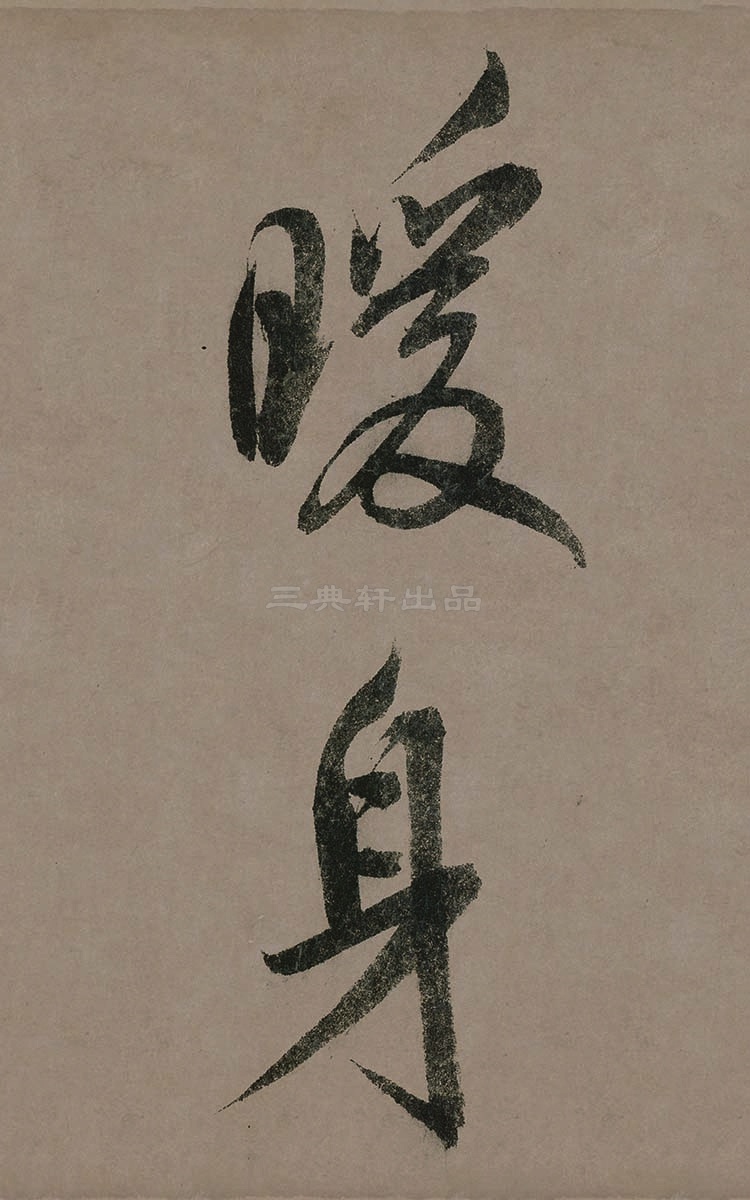 暖
三典轩出品
身